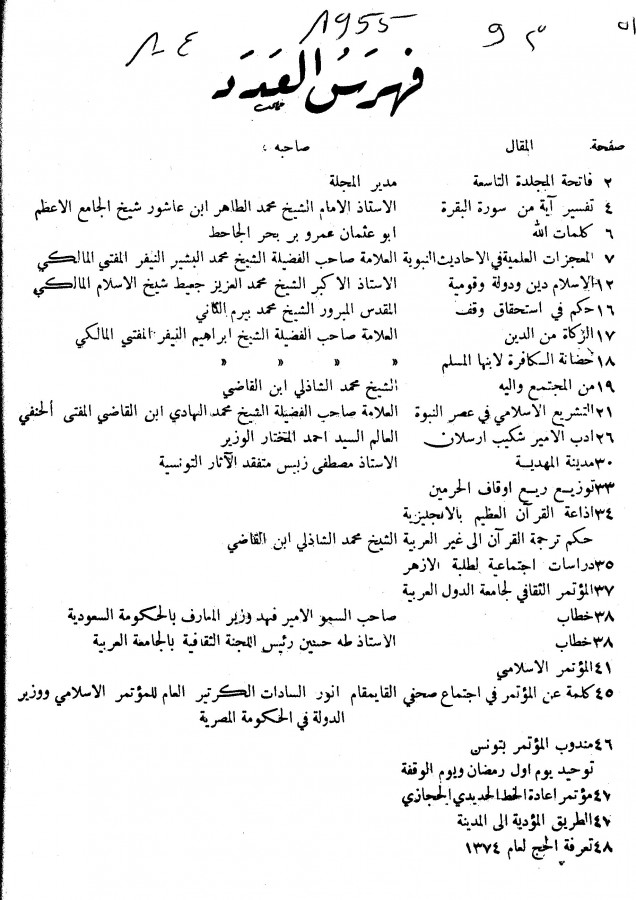 ٨ـ ع 1955 م 9 ٥١
فهرس العدد
صفحة المقال صاحبه :
٢ فاتحة المجلدة التاسعة مدير المجلة
٤ تفسير آية من سورة البقرة الاستاذ الامام الشيخ محمد الطاهر ابن عاشور شيخ الجامع الاعظم
٦ كلمات الله ابو عثمان عمرو بر بحر الجاحظ
٧ المعجزات العلمية في الاحاديث النبوية العلامة صاحب الفضيلة الشيخ محمد البشير النيفر المفتي المالكي
١٢ الاسلام دين ودولة وقومية الاستاذ الاكبر الشيخ محمد العزيز جعيط شيخ الاسلام المالكي
١٦ حكم في استحقاق وقف المقدس المبرور الشيخ محمد بيرم الثاني
١٧ الزكاة من الدين العلامة صاحب الفضيلة الشيخ ابراهيم النيفر المفتي المالكي
١٨ حضانة الكافرة لابنها المسلم » » » »
١٩ من المجتمع واليه الشيخ محمد الشاذلي ابن القاضي
٢١ التشريع الاسلامي في عصر النبوة العلامة صاحب الفضيلة الشيخ محمد الهادي ابن القاضي المفتى الحنفي
٢٦ ادب الامير شكيب ارسلان العالم السيد احمد المختار الوزير
٣٠ مدينة المهدية الاستاذ مصطفى زبيس متفقد الآثار التونسية
٣٣ توزيع ريع اوقاف الحرمين
٣٤ اذاعة القرآن العظيم بالانجليزية
حكم ترجمة القرآن الى غير العربية الشيخ محمد الشاذلي ابن القاضي
٣٥ دراسات اجتماعية لطلبة الازهر
٣٧ المؤتمر الثقافي لجامعة الدول العربية
٣٨ خطاب صاحب السمو الامير فهد وزير المعارف بالحكومة السعودية
٣٨ خطاب الاستاذ طه حسنين رئيس اللجنة الثقافية بالجامعة العربية
٤١ المؤتمر الاسلامي
٤٥ كلمة عن المؤتمر في اجتماع صحفي القايمقام انور السادات الكرتير العام للمؤتمر الاسلامي ووزير
الدولة في الحكومة المصرية
٤٦ مندوب المؤتمر بتونس
توحيد يوم اول رمضان ويوم الوقفة
٤٧ مؤتمر اعادة الخط الحديدي الحجازي
٤٧ الطريق المؤدية الى المدينة
٤٨ تعرفة الحج لعام ١٣٧٤